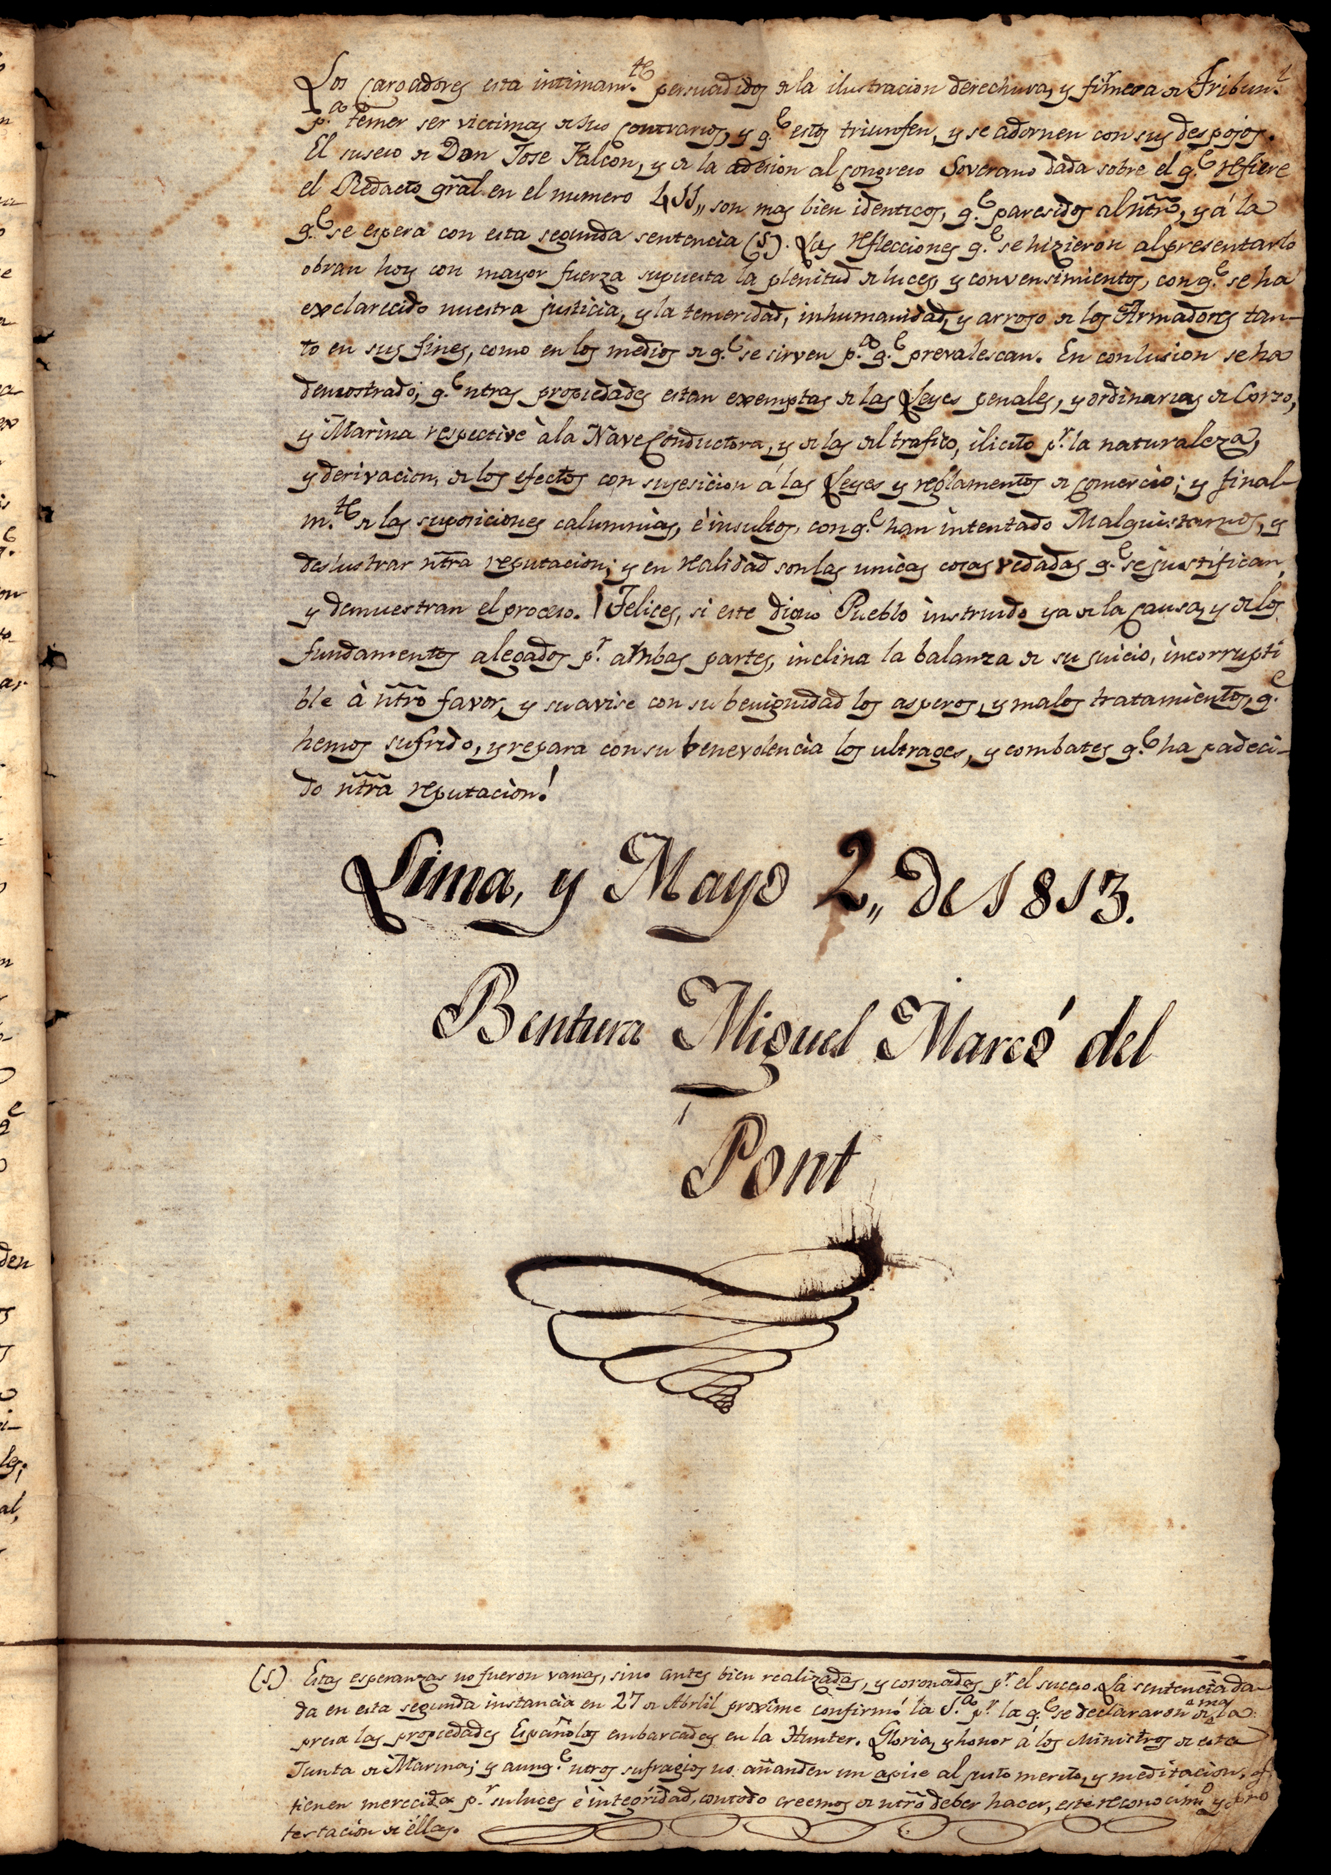 Los Cargadores esta intimam.te persuadidos de la ilustracion derechura, y firmeza de Tribun.l
p.a temer ser victimas de sus contrarios, y q.e estos triunfen, y se adornen con sus despojos.
El suseso de Don Jose Falcon, y de la adesion al Congreso Soverano dada sobre el q.e refiere
el Redacto gral. en el numero 455,, son mas bien identicos, q.e paresidos al ntro, y á la
q.e se espera con esta segunda sentencia (s). Las reflecciones q.e se hizieron al presentarlo
obran hoy con mayor fuerza supuesta la plenitud de luces, y convensimientos, con q.e se ha
exclarecido nuestra justicia, y la temeridad, inhumanidad, y arrojo de los Armadores tan-
to en sus fines, como en los medios de q.e se sirven p.a q.e prevalescan. En conlusion se ha
demostrado; q.e ntras propiedades estan exemptas de las Leyes penales, y ordinarias de Corzo,
y Marina respective à la Nave Conductora, y de las del trafico, ilicito p.r la naturaleza,
y derivacion, de los efectos con sugesicion á las Leyes y reglamentos de comercio; y final-
m.te de las suposiciones calumnias, é insultos, con q.e han intentado Malquistarnos, y
deslustrar ntra reputacion; y en realidad son las unicas cosas vedadas q.e se justifican,
y demuestran el proceso. ¡Felices, si este digno Pueblo instruido ya de la causa, y de los
fundamentos alegados p.r ambas partes, inclina la balanza de su juicio, incorrupti
ble à ntro favor, y suavise con su benignidad los asperos, y malos tratamientos, q.e
hemos sufrido, y repara con su benevolencia los ultrages, y combates q.e ha padeci-
do ntra reputacion!
Lima, y Mayo 2,, de 1813.
Bentura Miguel Marcó del
Pont
(s) Estas esperanzas no fueron vanas, sino antes bien realizadas, y coronadas p.r el suceso. La sentencia da-
da en esta segunda instancia en 27 de Abril proxime confirmó la S.a p.r la q.e se declararon de mala
presa las propiedades Españolas embarcades en la Hunter. Gloria, y honor á los Ministros de esta
Junta de Marina; y aunq.e ntros sufragios no añanden un apise al justo merito, y meditacion, q.e
tienen merecida p.r su luces é integridad, con todo creemos de ntro deber hacer, este reconocim.to y pro
testacion de ellas.